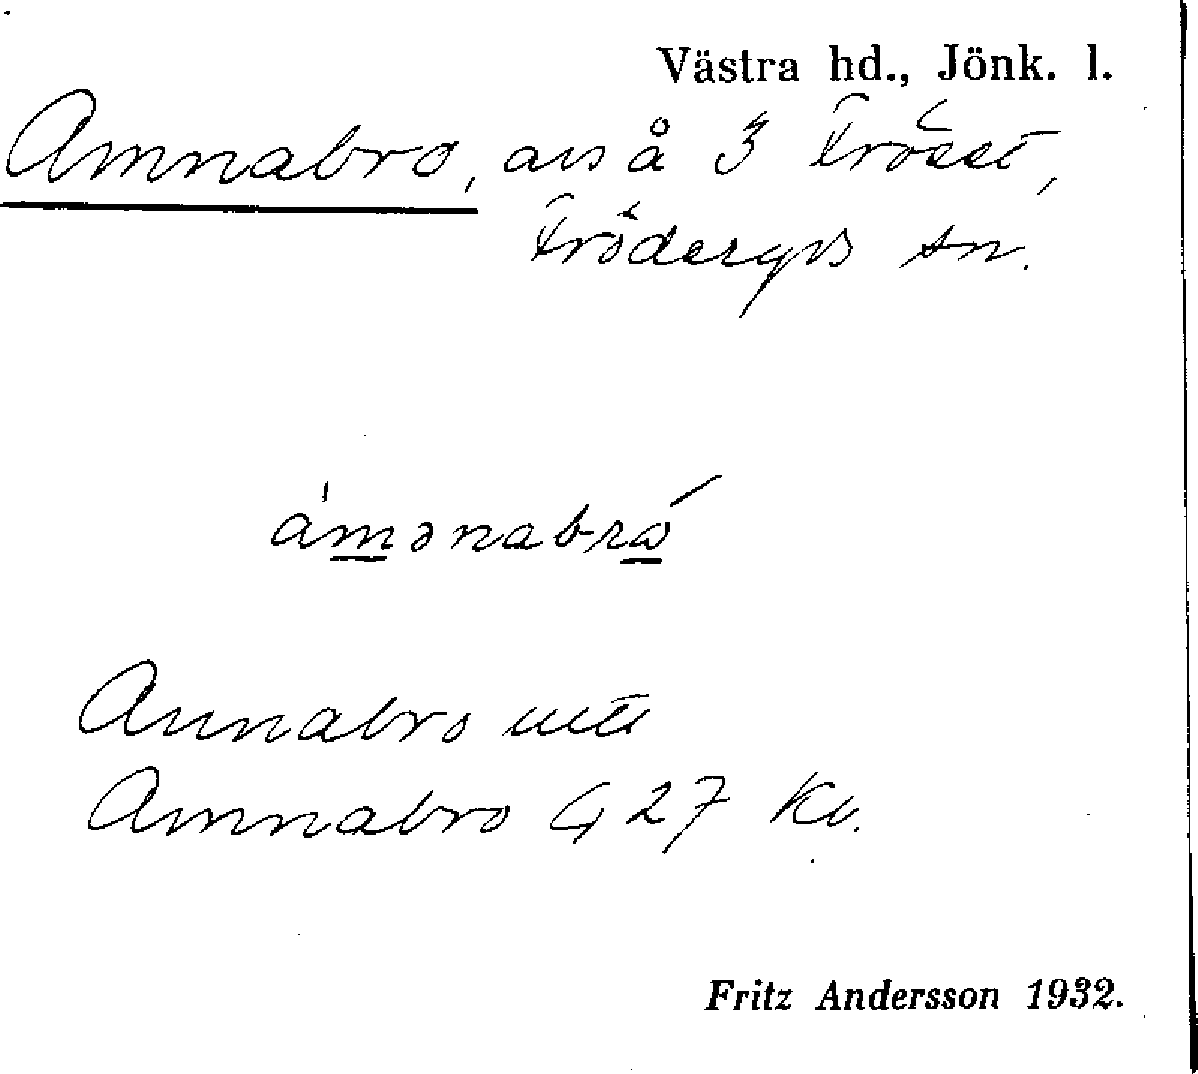 Västra hd., Jönk. l.
Amnabro, avs å 3 Fröset,
Fröderyds sn.
ámənabrω
Annabro uttr
Amnabro G 27 Kv.
Fritz Andersson 1932.